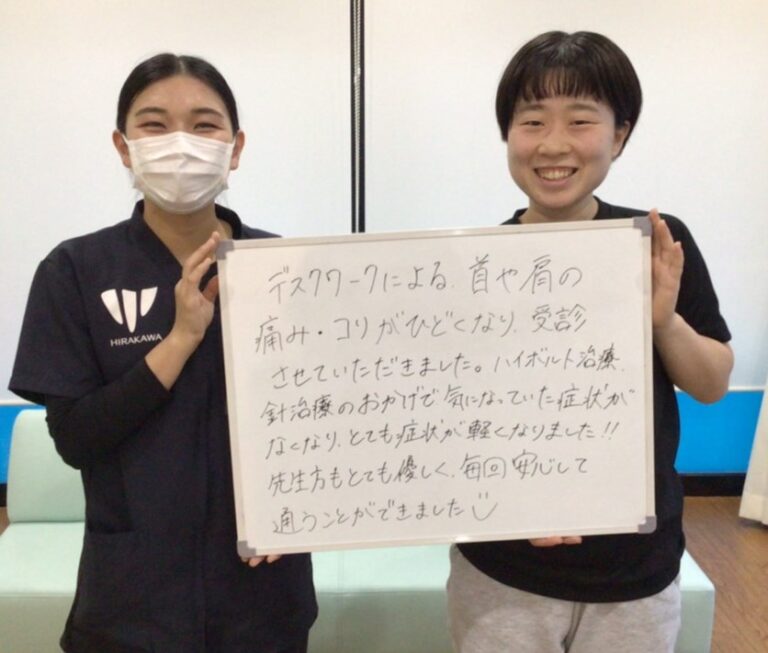 HIRAKAWA
デスクワークによる、首や肩の
痛み・コリがひどくなり、受診
させていただきました。ハイボルト治療、
針治療のおかげで気になっていた症状が
なくなり、とても症状が軽くなりました!!
先生方もとても優しく、毎回安心して
通うことができました